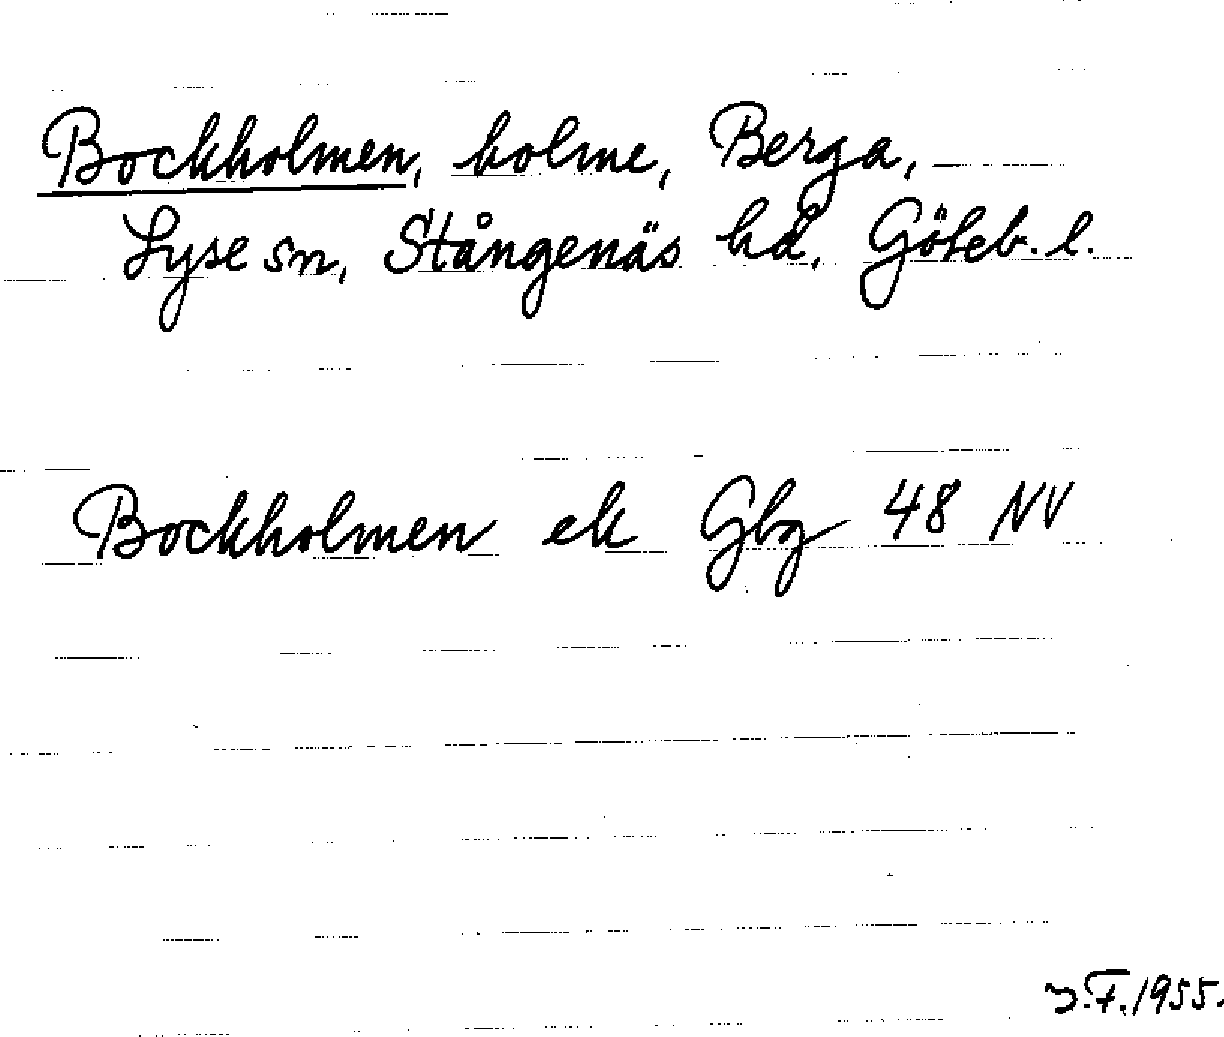 Bockholmen, holme, Berga,
Lyse sn, Stångenäs hd, Göteb. l.
Bockholmen ek Gbg 48 NV
J.F./1955.